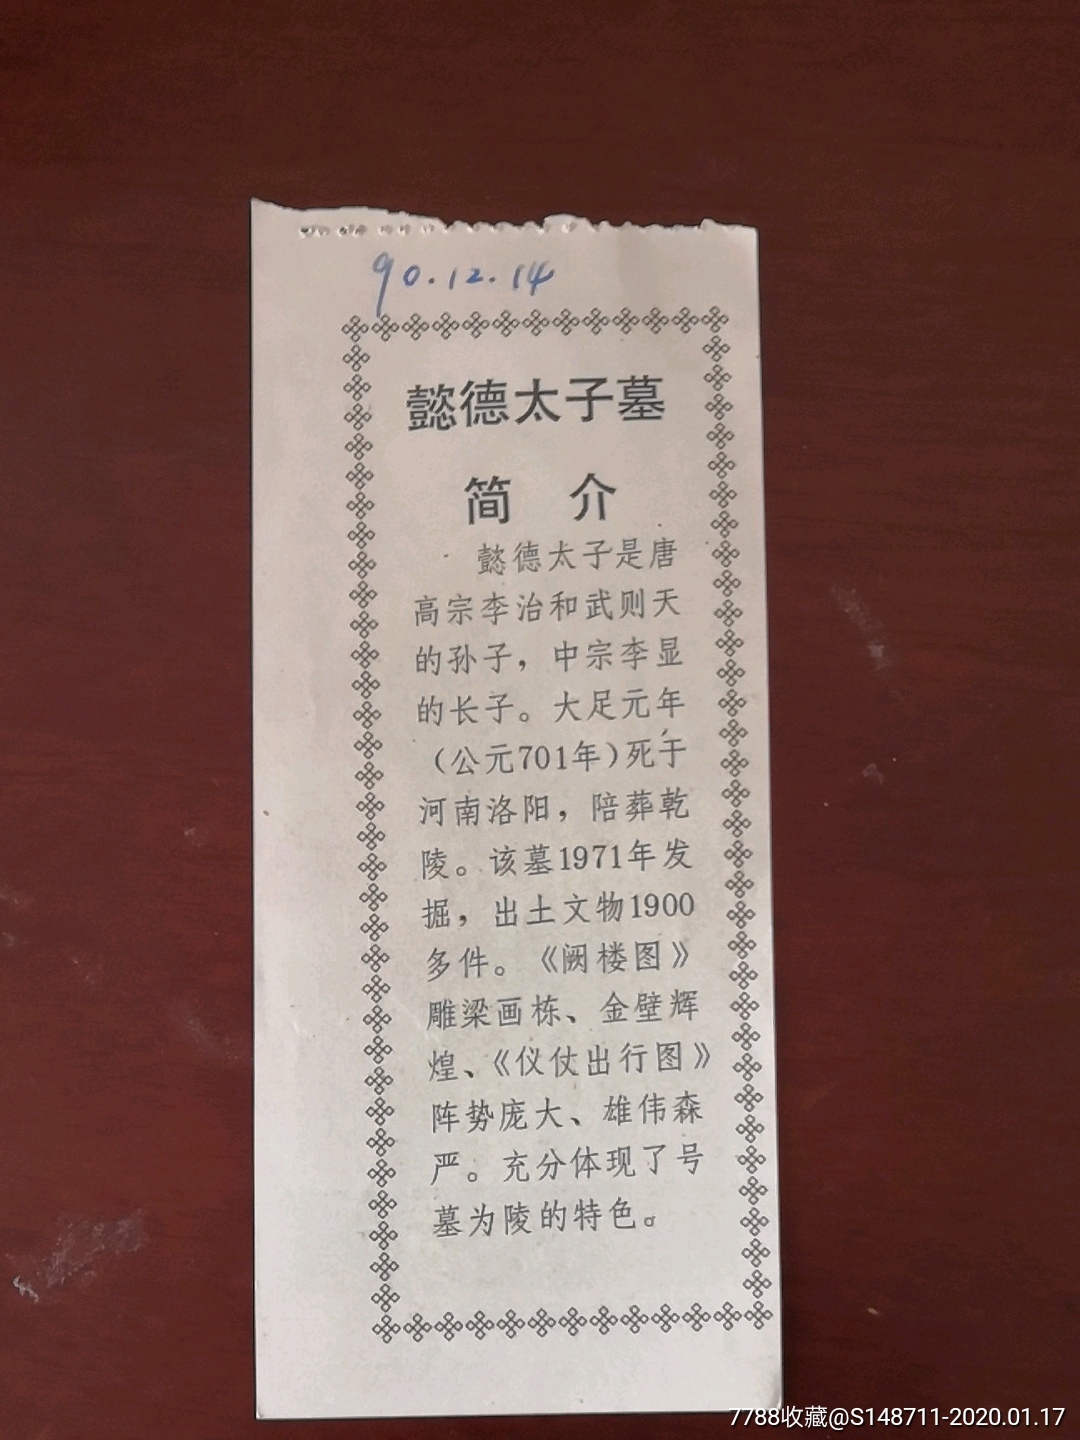 90.12.14
懿德太子墓
简 介
懿德太子是唐
高宗李治和武则天
的孙子，中宗李显
的长子。大足元年
（公元701年）死于
河南洛阳，陪葬乾
陵。该墓1971年发
掘，出土文物1900
多件。《阙楼图》
雕梁画栋、金壁辉
煌、《仪仗出行图》
阵势庞大、雄伟森
严。充分体现了号
墓为陵的特色。
7788收藏@S148711-2020.01.17